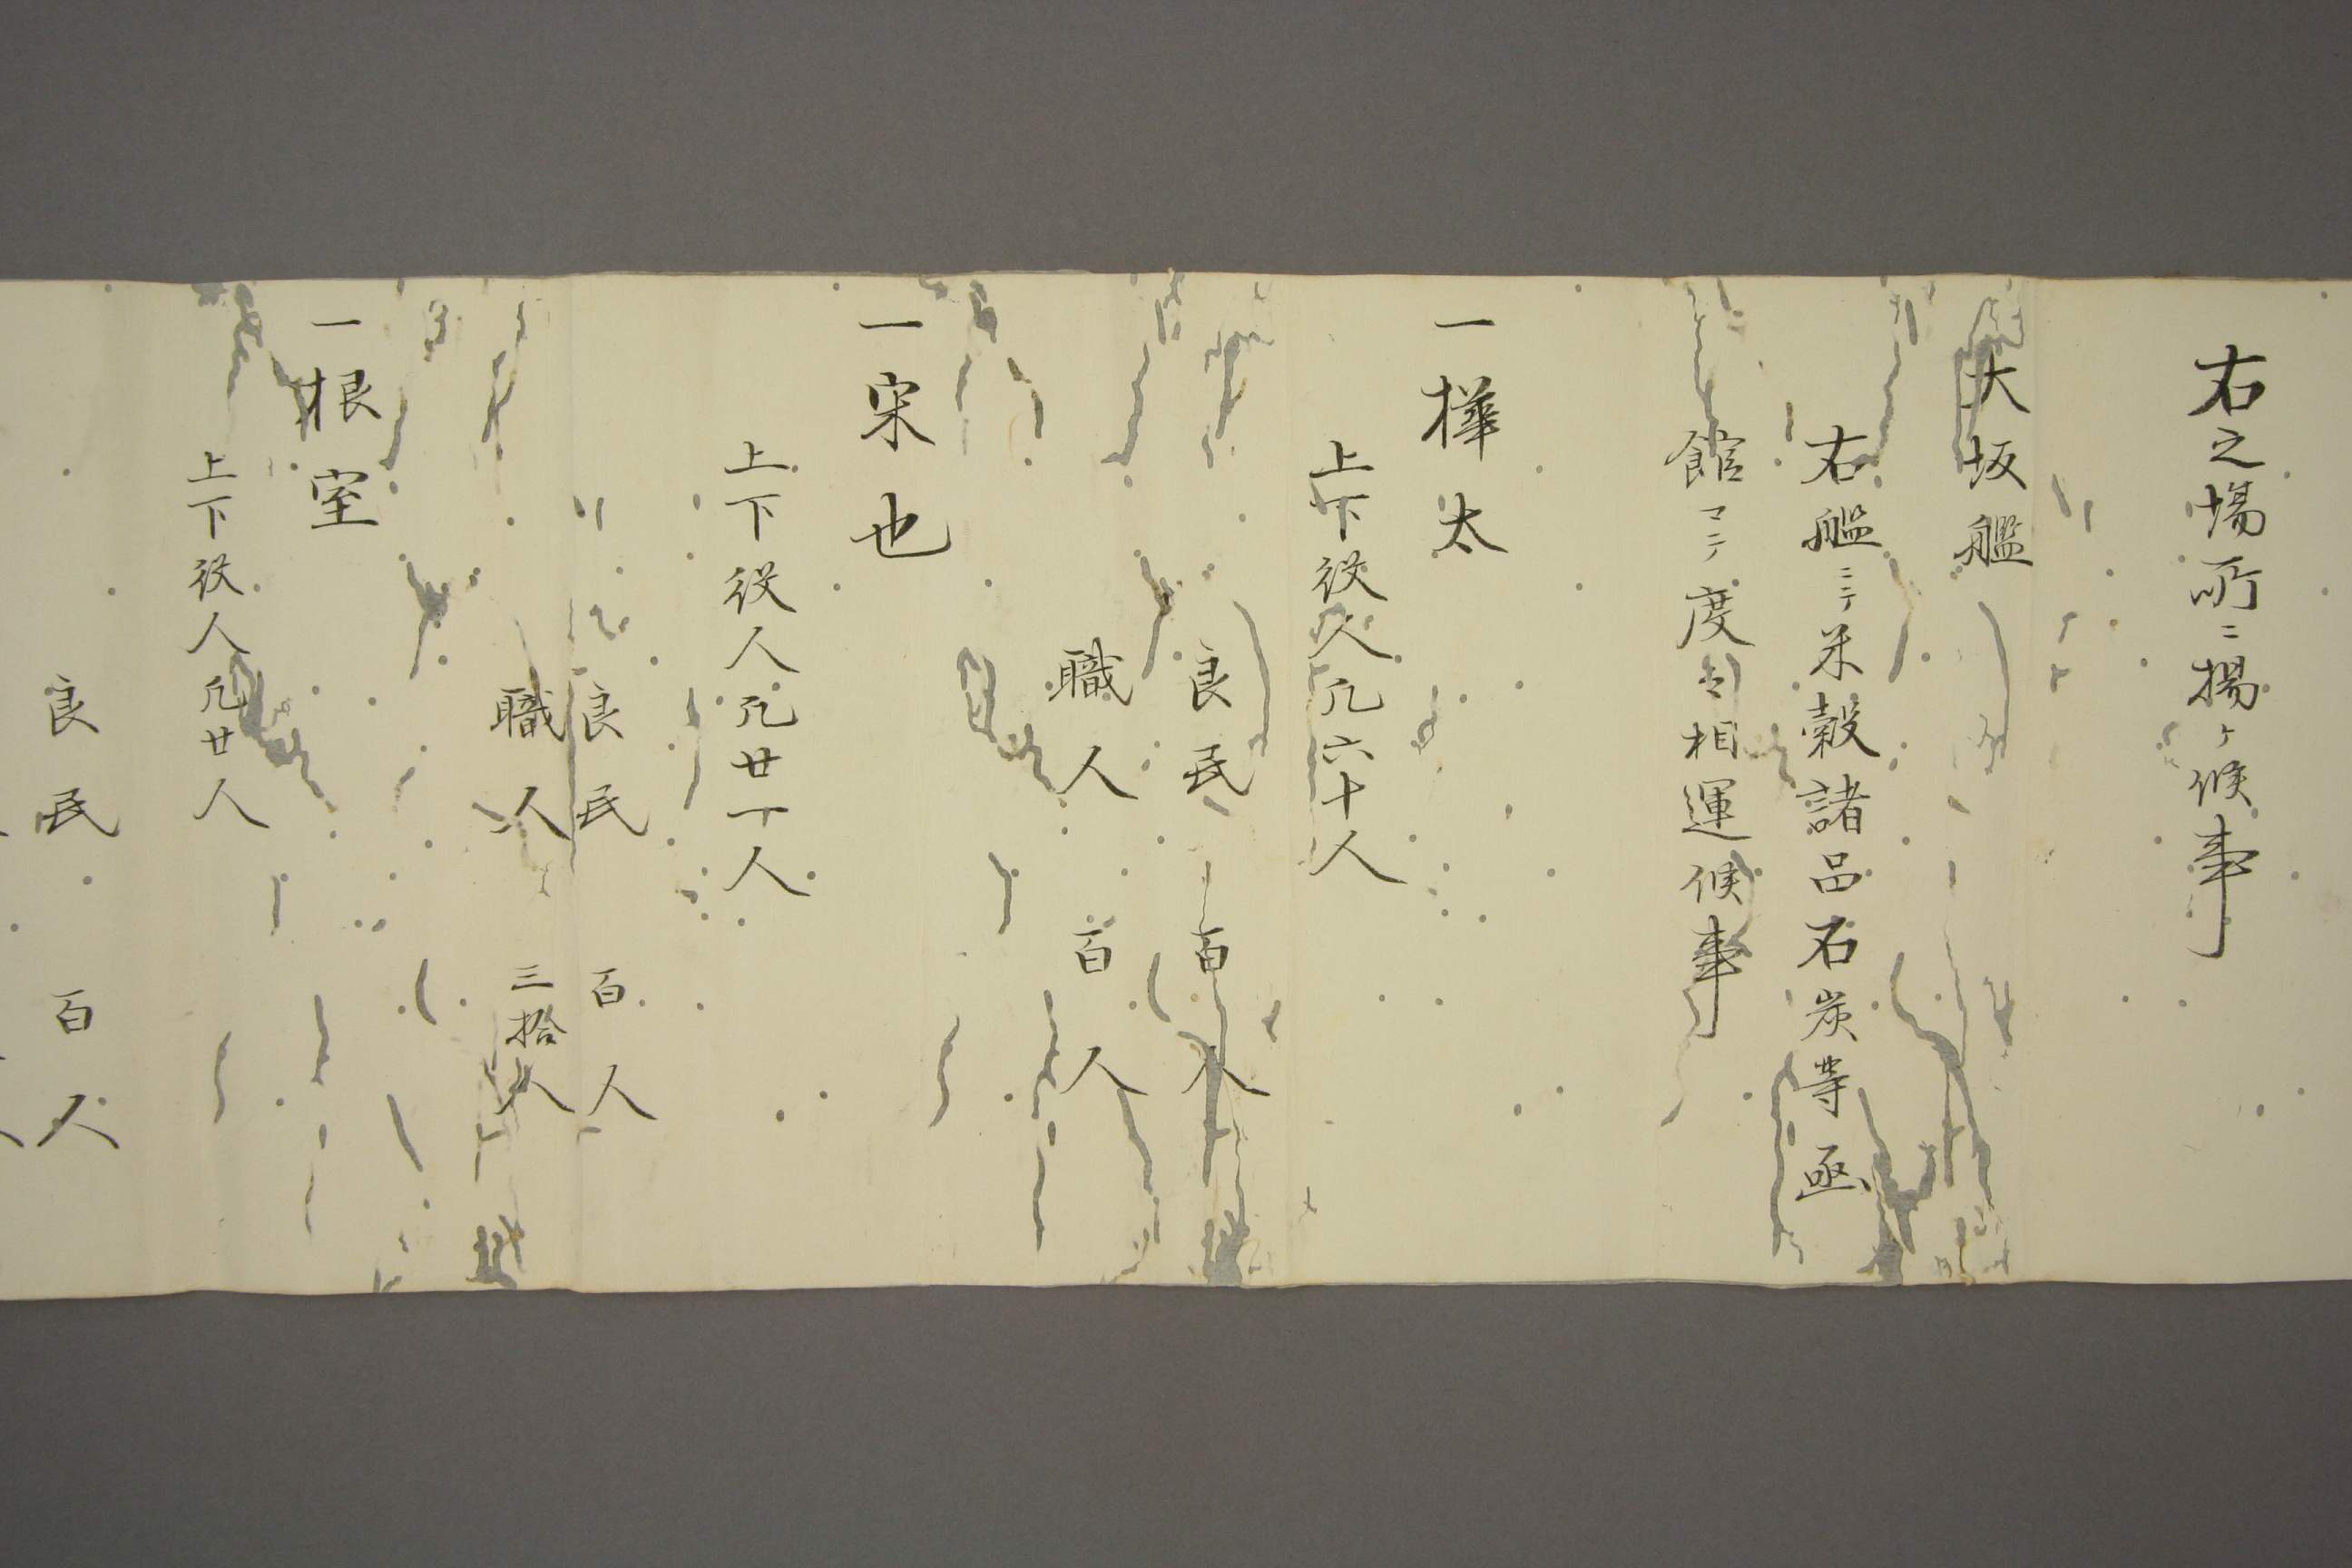 右之場所ニ揚ケ候事
大坂艦
右艦ニテ米穀諸品石炭等函
館マテ度々相運候事
一樺太
上下役人凡六十人
良民 百人
職人 百人
一宗也
上下役人凡廿一人
良民 百人
職人 三拾人
一根室
上下役人凡廿人
良民 百人